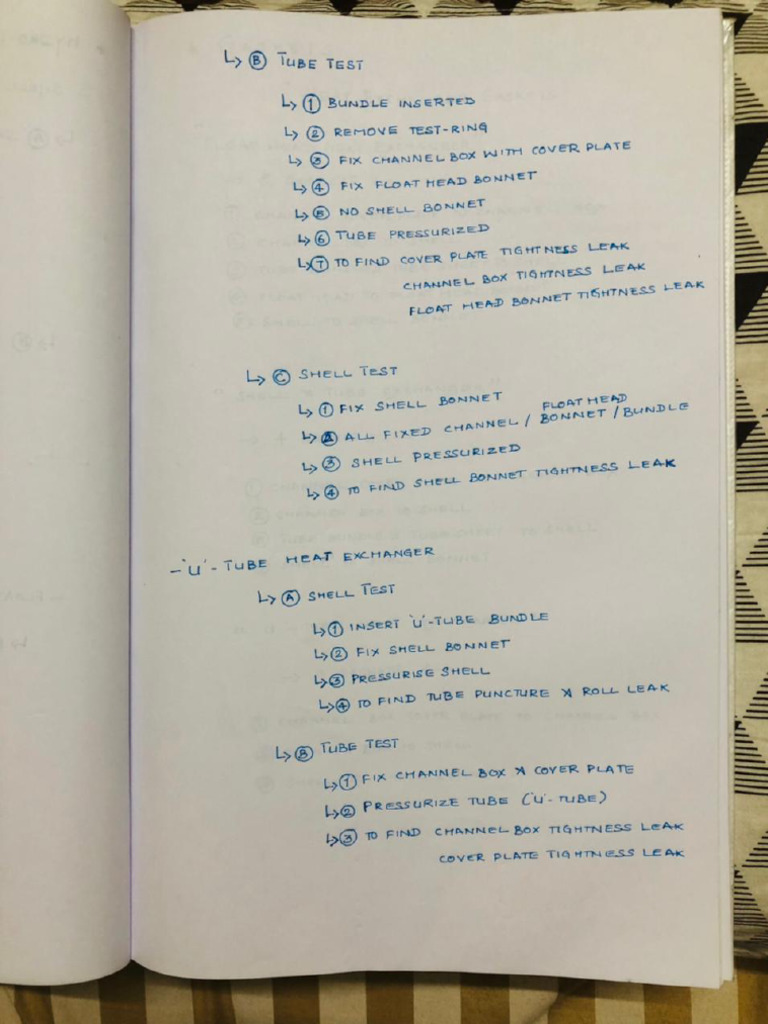 ↳ Ⓑ TUBE TEST
↳ ① BUNDLE INSERTED
↳ ② REMOVE TEST-RING
↳ ③ FIX CHANNEL BOX WITH COVER PLATE
↳ ④ FIX FLOAT HEAD BONNET
↳ ⑤ NO SHELL BONNET
↳ ⑥ TUBE PRESSURIZED
↳ ⑦ TO FIND COVER PLATE TIGHTNESS LEAK
CHANNEL BOX TIGHTNESS LEAK
FLOAT HEAD BONNET TIGHTNESS LEAK
↳ Ⓒ SHELL TEST
↳ ① FIX SHELL BONNET
↳ ② ALL FIXED CHANNEL / FLOAT HEAD BONNET / BUNDLE
↳ ③ SHELL PRESSURIZED
↳ ④ TO FIND SHELL BONNET TIGHTNESS LEAK
- 'U' - TUBE HEAT EXCHANGER
↳ Ⓐ SHELL TEST
↳ ① INSERT 'U'-TUBE BUNDLE
↳ ② FIX SHELL BONNET
↳ ③ PRESSURISE SHELL
↳ ④ TO FIND TUBE PUNCTURE & ROLL LEAK
↳ Ⓑ TUBE TEST
↳ ① FIX CHANNEL BOX & COVER PLATE
↳ ② PRESSURIZE TUBE ('U'-TUBE)
↳ ③ TO FIND CHANNEL BOX TIGHTNESS LEAK
COVER PLATE TIGHTNESS LEAK